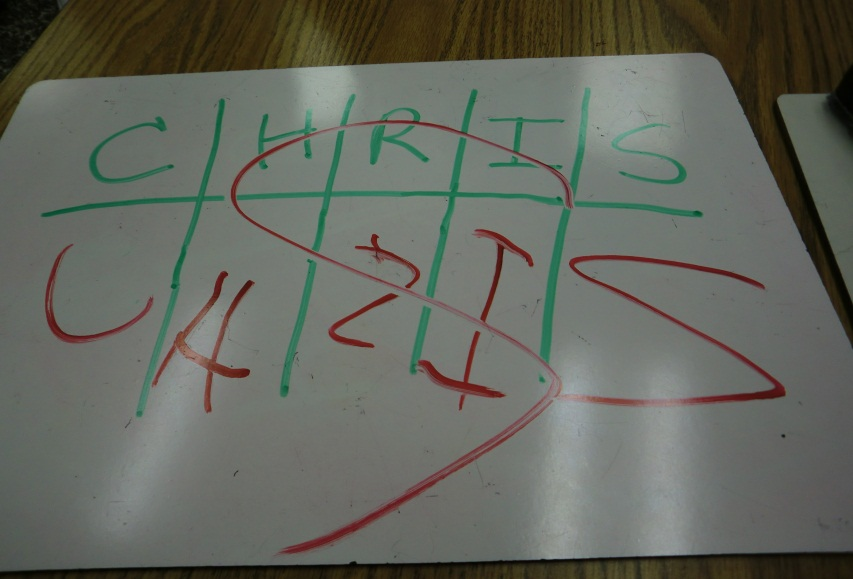 C H R I S
C H R I S